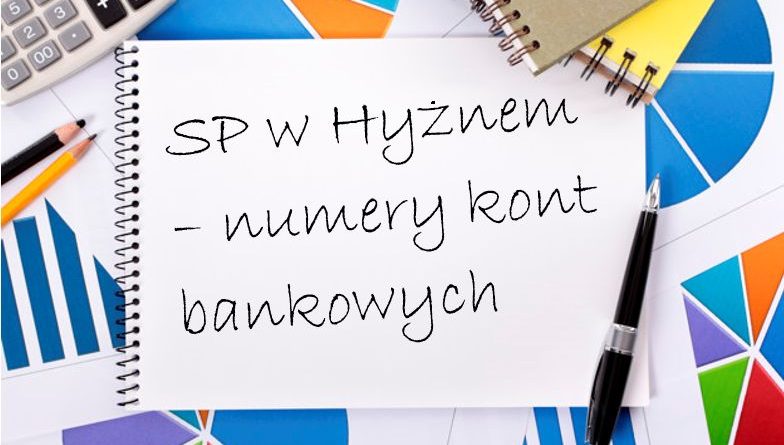 SP w Hyżnem
– numery kont
bankowych